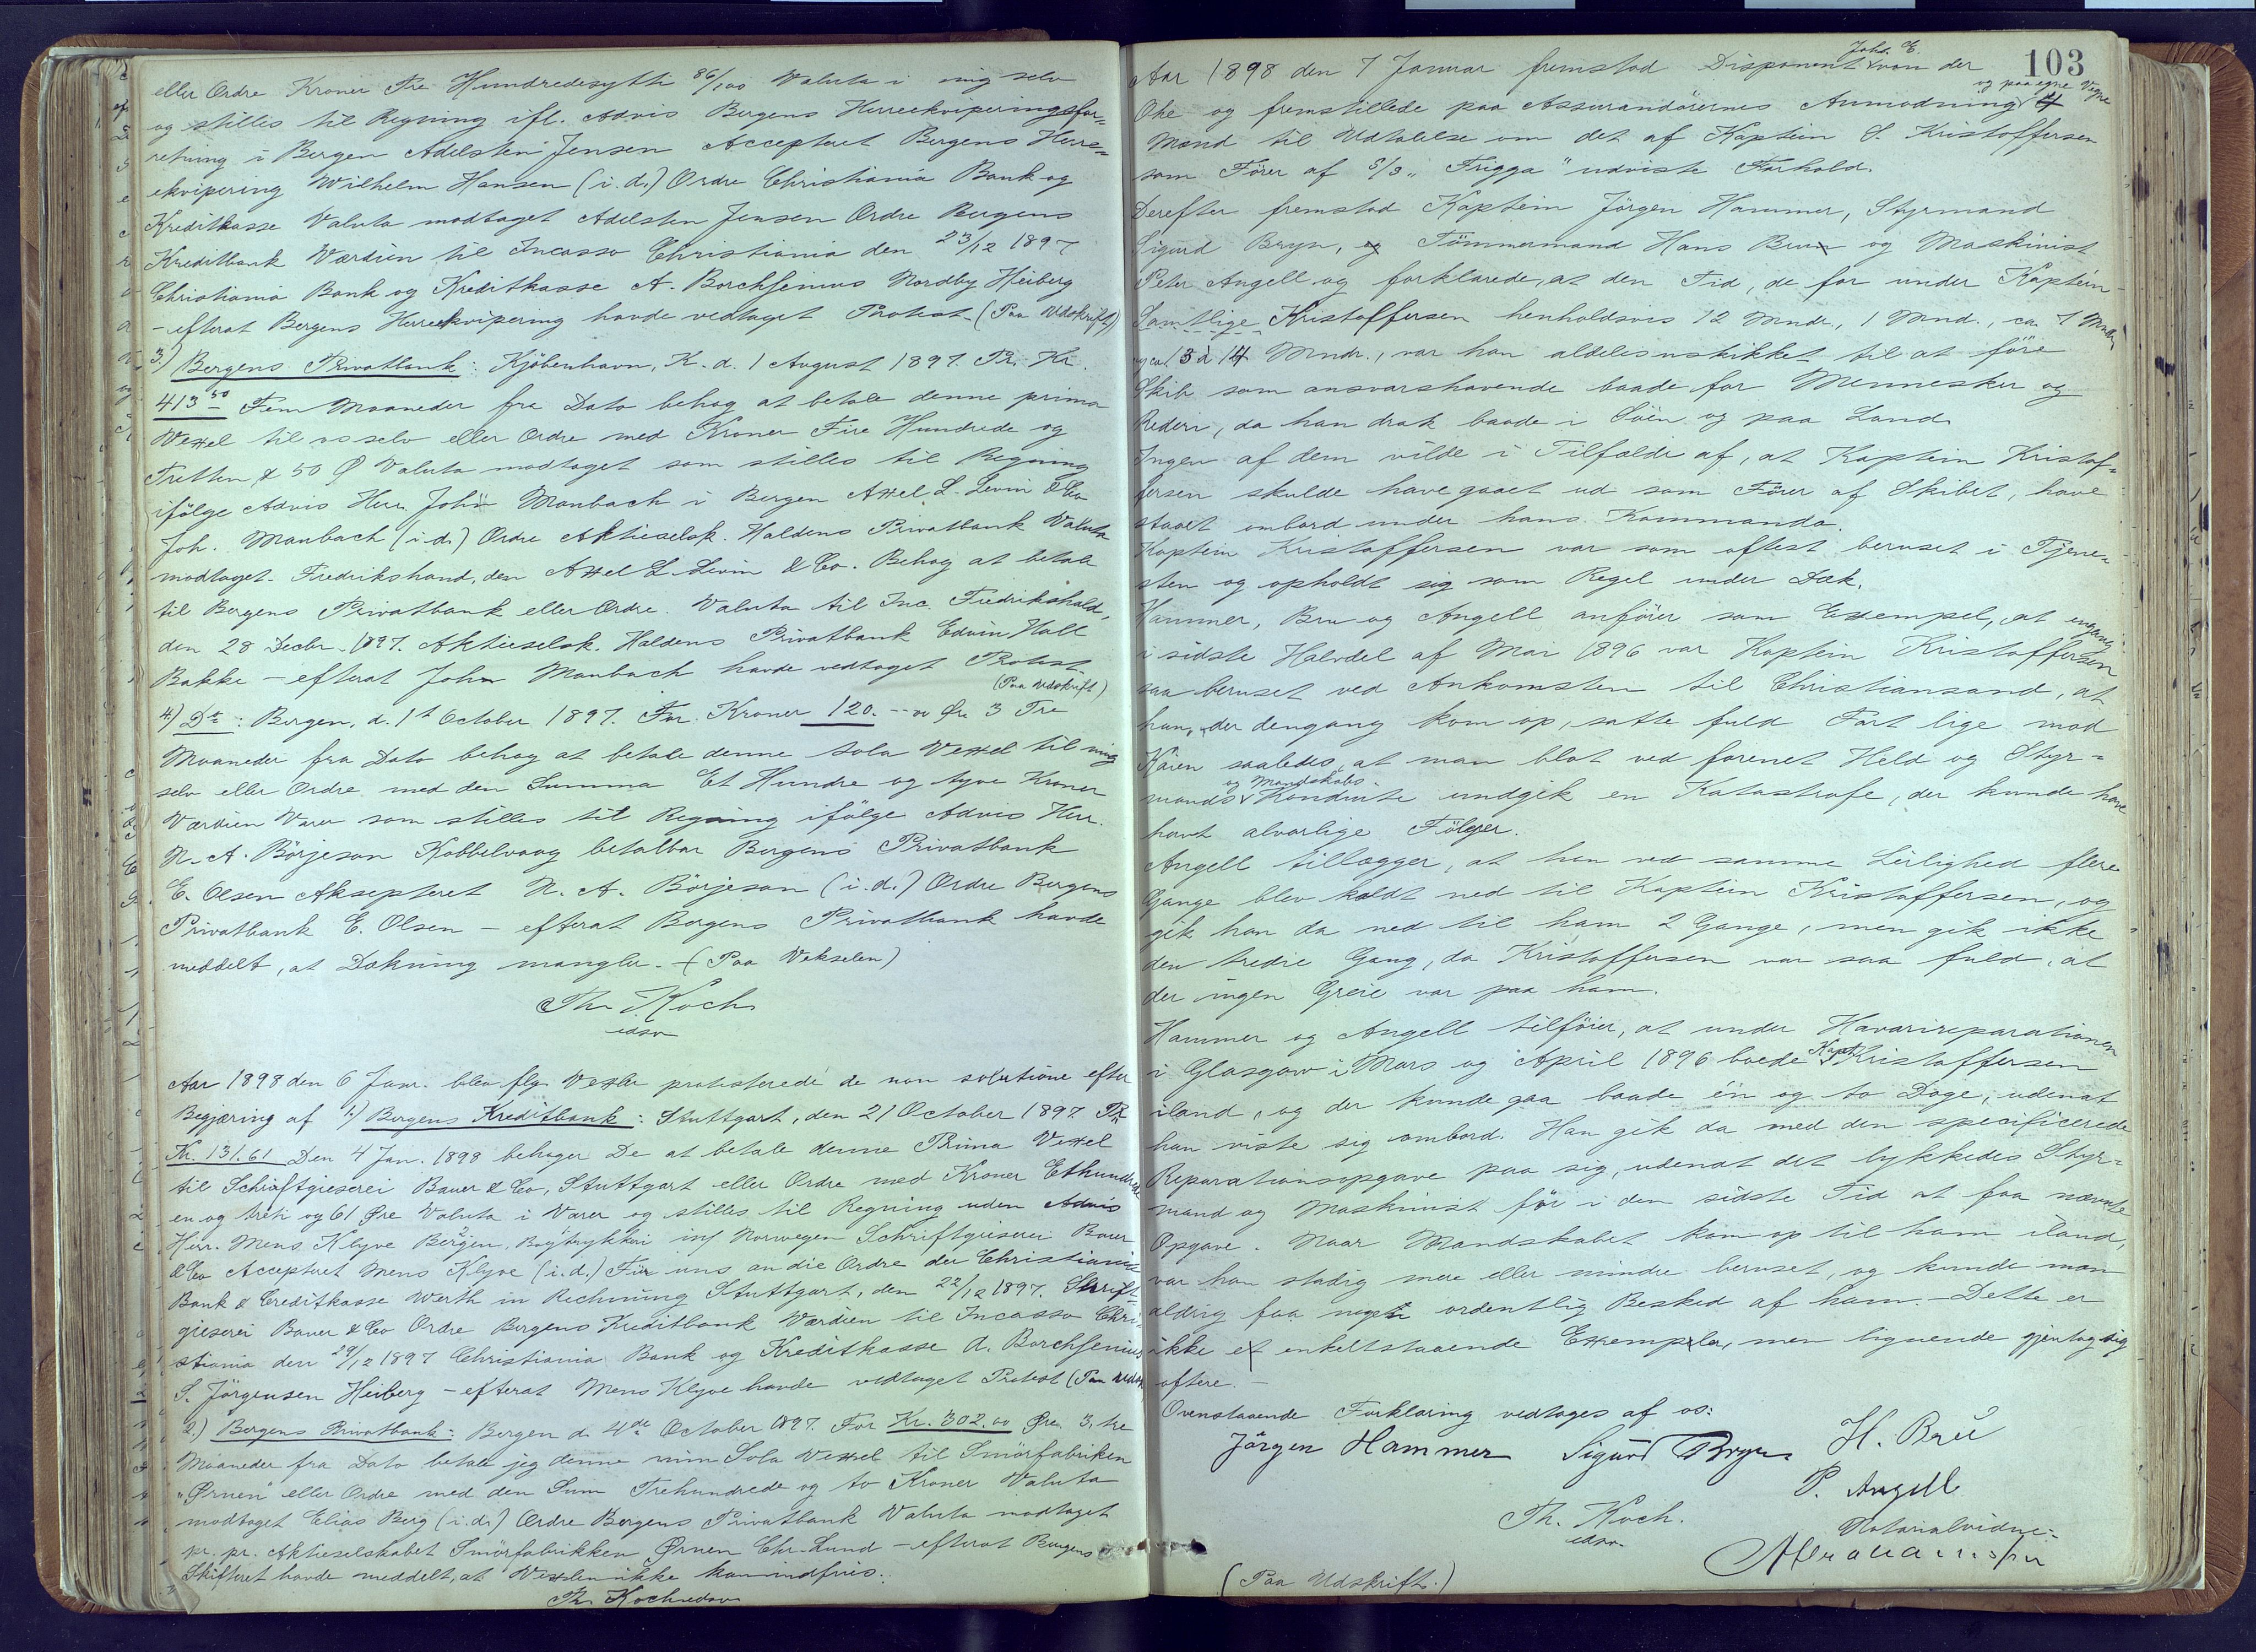 eller Ordre Kroner Tre Hundredesytti 86/100 Valuta i mig selv
og stilles til Regning ifl. Advis Bergens Herreekviperingsfor=
retning i Bergen Adelsten Jensen Accepteret Bergens Herre=
ekvipering Wilhelm Hansen (i.d.) Ordre Christiania Bank og
Kreditkasse Valuta modtaget Adelsten Jensen Ordre Bergens
Kreditbank Værdien til Incasso Christiania den 23/12 1897
Christiania Bank og Kreditkasse A. Borchsenius Nordby Heiberg
- efterat Bergens Herreekvipering havde vedtaget Protest - (Paa Udskrift)
3.) Bergens Privatbank: Kjöbenhavn, K. d. 1 August 1897. Pr. Kr.
413 50 Fem Maaneder fra Dato behag at betale denne prima
Vexel til os selv eller Ordre med Kroner Fire Hundrede og
Tretten & 50 Ø Valuta modtaget som stilles til Regning
ifölge Advis Herr. John Manbach i Bergen Axel L. Levin & Co
Joh. Manbach (i.d.) Ordre Aktieselsk. Haldens Privatbank Valuta
modtaget. Fredrikshand, den Axel L. Levin & Co. Behag at betale
til Bergens Privatbank eller Ordre. Valuta til Inc. Fredrikshald,
den 28 Decbr. 1897. Aktieselsk. Haldens Privatbank Edvin Hall
Bakke - efterat John Manbach havde vedtaget Protest
(Paa Udskrift)
4.) Do: Bergen, d. 1t October 1897. For Kroner 120. - Øre 3 Tre
Maaneder fra Dato behag at betale denne sola Vexel til mig
selv eller Ordre med den Summa Et Hundre og tyve Kroner
Værdien Varer som stilles til Regning ifölge Advis Herr.
N. A. Börjeson Kobbelvaag betalbar Bergens Privatbank
E. Olsen Aksepteret N. A. Börjeson (i.d.) Ordre Bergens
Privatbank E. Olsen - efterat Bergens Privatbank havde
meddelt, at Dækning mangler. - (Paa Vekselen)
Th. Koch
edsv
Aar 1898 den 6 Janr. blev flg. Vexler protesterede de non solutione efter
Begjæring af 1.) Bergens Kreditbank: Stuttgart, den 21 October 1897 Pr.
Kr. 131.61 Den 4 Jan. 1898 behager De at betale denne Prima Vexel
til Schriftgieserei Bauer & Co, Stuttgart eller Ordre med Kroner Ethundrede
en og treti og 61 Øre Valuta i Varer og stilles til Regning uden Advis
Herr. Mens Klyve Bergen, Bogtrykkeri in/ Norwegen Schriftgieserei Bauer
& Co Accepteret Mens Klyve (i.d.) Für uns an die Ordre der Christiania
Bank & Creditkasse Werth in Rechnung Stuttgart, den 22/12 1897. Schrift
gieserei Bauer & Co Ordre Bergens Kreditbank Værdien til Incasso Chri=
stiania den 29/12 1897 Christiania Bank og Kreditkasse A. Borchsenius
S. Jörgensen Heiberg - efterat Mens Klyve havde vedtaget Protest (Paa Udskr
2.) Bergens Privatbank: Bergen d. 4de October 1897. For Kr. 302.00 Øre 3, tre
Maaneder fra Dato betale jeg denne min Sola Vexel til Smörfabriken
"Ørnen" eller Ordre med den Sum Trehundrede og to Kroner Valuta
modtaget Elias Berg (i.d.) Ordre Bergens Privatbank Valuta modtaget
pr. pr. Aktieselskabet Smörfabrikken Ørnen Chr. Lund - efterat Bergens
Skifteret havde meddelt, at Vexelen ikke kan indfries.
Th. Koch edsv
103
Aar 1898 den 7 Januar fremstod Disponent Joh. E. von der
Ohe og fremstillede paa Assurandörernes og paa egne Vegne Anmodning 4
Mænd til Udtalelse om det af Kaptein S. Kristoffersen
som Förer af S/S "Frigga" udviste Forhold.
Derefter fremstod Kaptein Jörgen Hammer, Styrmand
Sigurd Bryn, og Tömmermand Hans Bru og Maskinist
Peter Angell og forklarede, at den Tid, de for under Kaptein
Samtlige Kristoffersen henholdsvis 12 Mndr., 1 Mnd., ca. 7 Mndr.
og ca. 13 à 14 Mndr., var han aldeles uskikket til at före
Skib som ansvarshavende baade for Mennesker og
Rederi, da han drak baade i Söen og paa Land.
Ingen af dem vilde i Tilfælde af, at Kaptein Kristof=
fersen skulde have gaaet ud som Förer af Skibet, have
staaet ombord under hans Kommando.
Kaptein Kristoffersen var som oftest beruset i Tjene=
sten og opholdt sig som Regel under Dæk.
Hammer, Bru og Angell anförer som Exempel, at engang
i sidste Halvdel af Mar 1896 var Kaptein Kristoffersen
saa beruset ved Ankomsten til Christiansand, at
han, der dengang kom op, satte fuld Fart lige mod
Kaien saaledes, at man blot ved forenet Held og Styr=
mands og Mandskabs Konduite undgik en Katastrofe, der kunde have
havt alvorlige Fölger.
Angell tillægger, at han ved samme Leilighed flere
Gange blev kaldt ned til Kaptein Kristoffersen, og
gik han da ned til ham 2 Gange, men gik ikke
den tredie Gang, da Kristoffersen var saa fuld, at
der ingen Greie var paa ham.
Hammer og Angell tilföier, at under Havarireparationen
i Glasgow i Mars og April 1896 boede Kapt. Kristoffersen
iland, og der kunde gaa baade én og to Dage, udenat
han viste sig ombord. Han gik da med den specificerede
Reparationsopgave paa sig, udenat det lykkedes Styr=
mand og Maskinist för i den sidste Tid at faa nævnte
Opgave. Naar Mandskabet kom op til ham iland,
var han stadig mere eller mindre beruset, og kunde man
aldrig faa noget ordentlig Besked af ham. - Dette er
ikke et enkeltstaaende Exempel, men lignende gjentog sig
oftere. -
Ovenstaaende Forklaring vedtages af os:
Jörgen Hammer Sigurd Bryn H. Bru
P. Angell
Th. Koch.
edsv.
Notarialvidne:
(Paa Udskrift.)